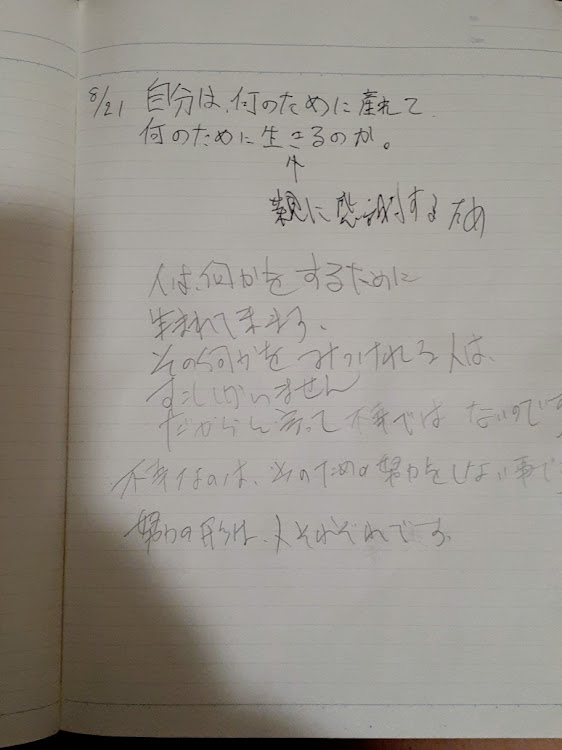 8/21 自分は、何のために産れて
何のために生きるのか。
↑
親に感謝するため
人は、何かをするために
生まれてきます、
その何かをみつけれる人は、
すこししかいません
だからと言って不幸ではないのです
不幸なのは、そのための努力をしない事で
努力の形は、人それぞれです。